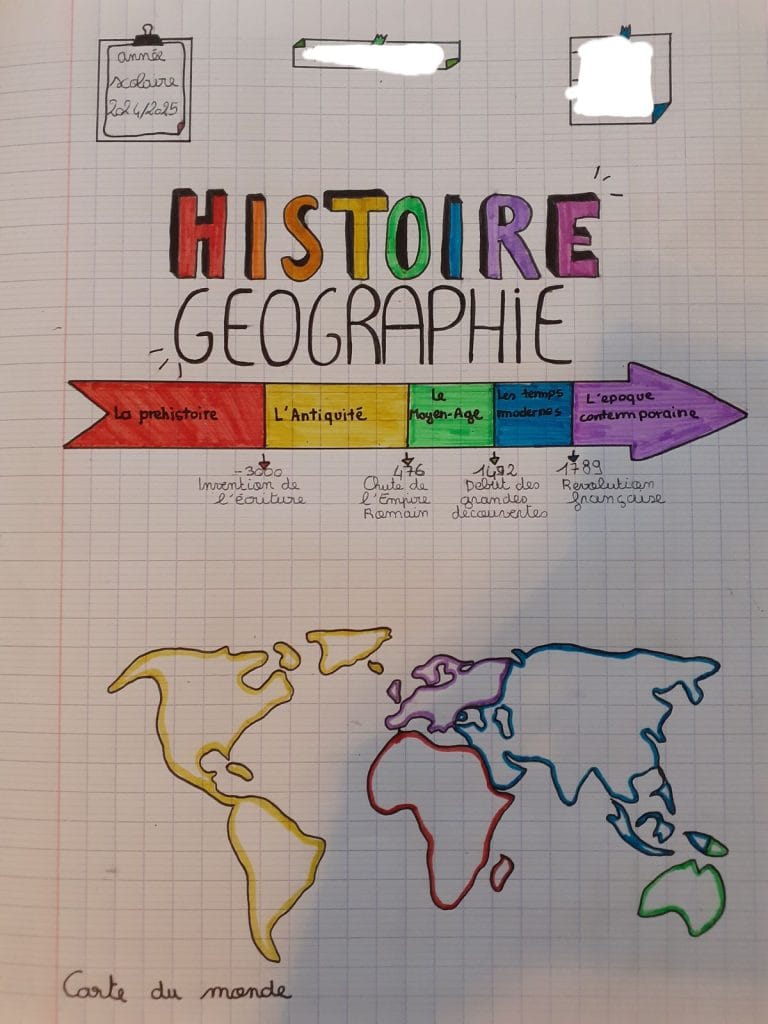 année
scolaire
2024/2025
HISTOIRE
GEOGRAPHiE
La prehistoire
L'Antiquité
Le
Moyen-Age
Les temps
modernes
L'epoque
contemporaine
-3000
Invention de
l'écriture
476
Chute de
l'Empire
Romain
1492
Debut des
grandes
découvertes
1789
Revolution
française
Carte du monde